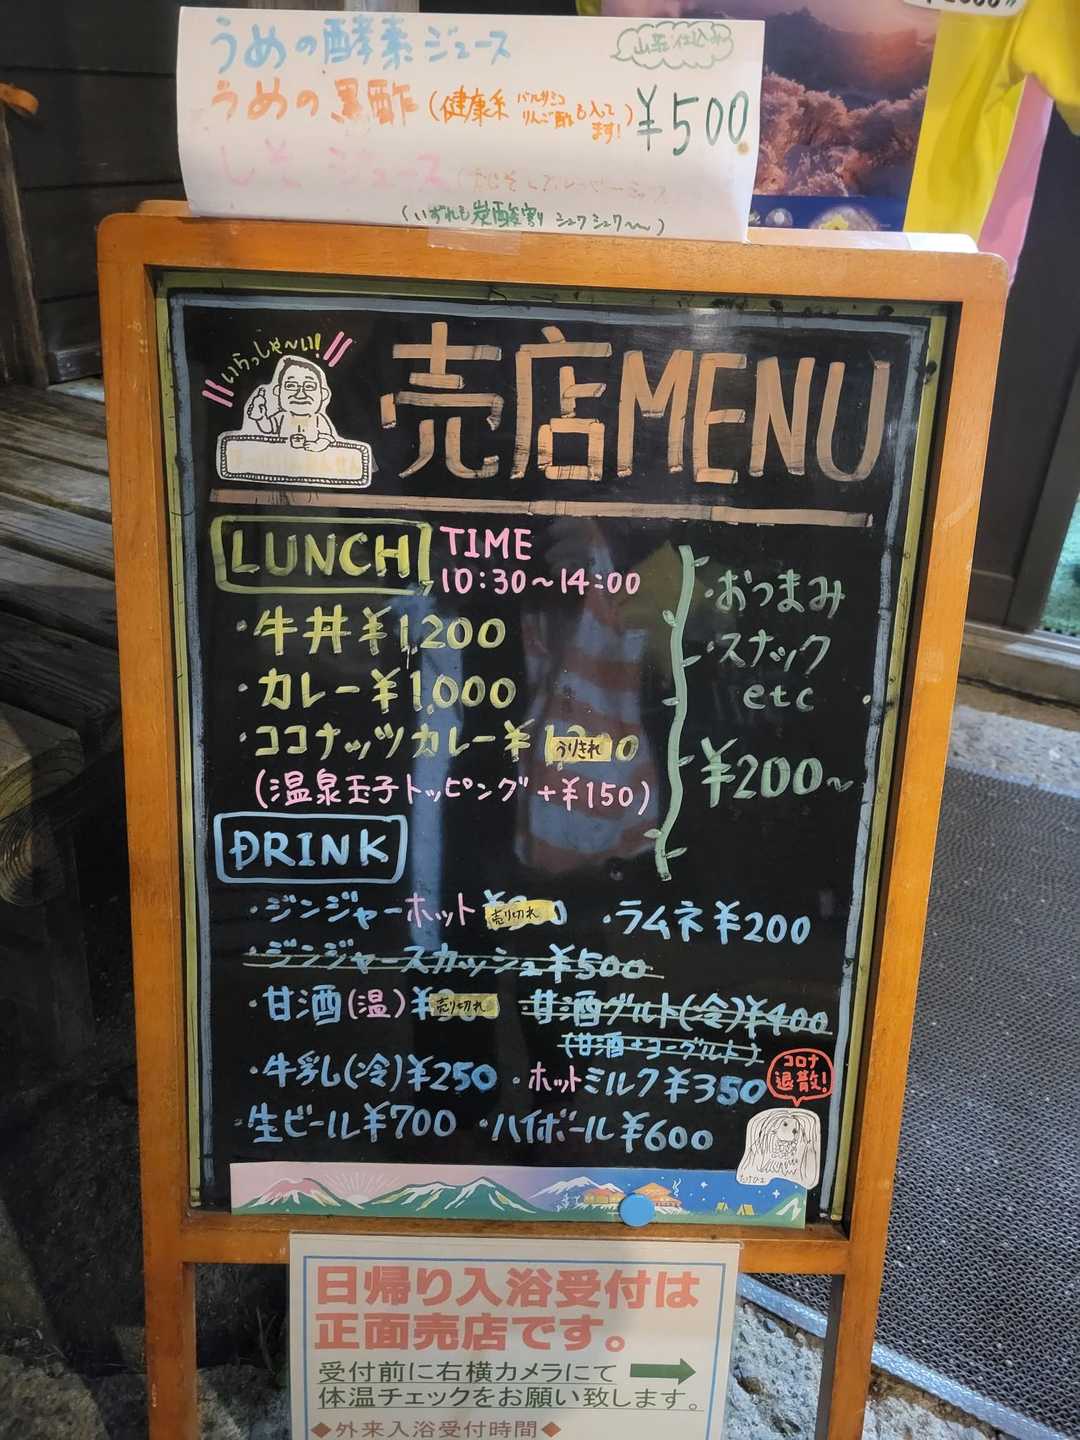 うめの酵素ジュース
山荘仕込み
うめの黒酢(健康系 バルサミコ りんご酢も入ってます!) ¥500
しそジュース
(いずれも炭酸割り シュワシュワ〜〜)
いらっしゃ〜い!
売店MENU
LUNCH TIME 10:30〜14:00
・牛丼¥1,200
・カレー¥1,000
・ココナッツカレー¥ うりきれ
(温泉玉子トッピング+¥150)
・おつまみ
・スナック
etc
¥200〜
DRINK
・ジンジャーホット 売り切れ
・ラムネ¥200
・ジンジャースカッシュ¥500
・甘酒(温)¥ 売り切れ
甘酒グルト(冷)¥400
(甘酒+ヨーグルト)
・牛乳(冷)¥250
・ホットミルク¥350
・生ビール¥700
・ハイボール¥600
コロナ
退散!
日帰り入浴受付は
正面売店です。
受付前に右横カメラにて
体温チェックをお願い致します。
◆外来入浴受付時間◆